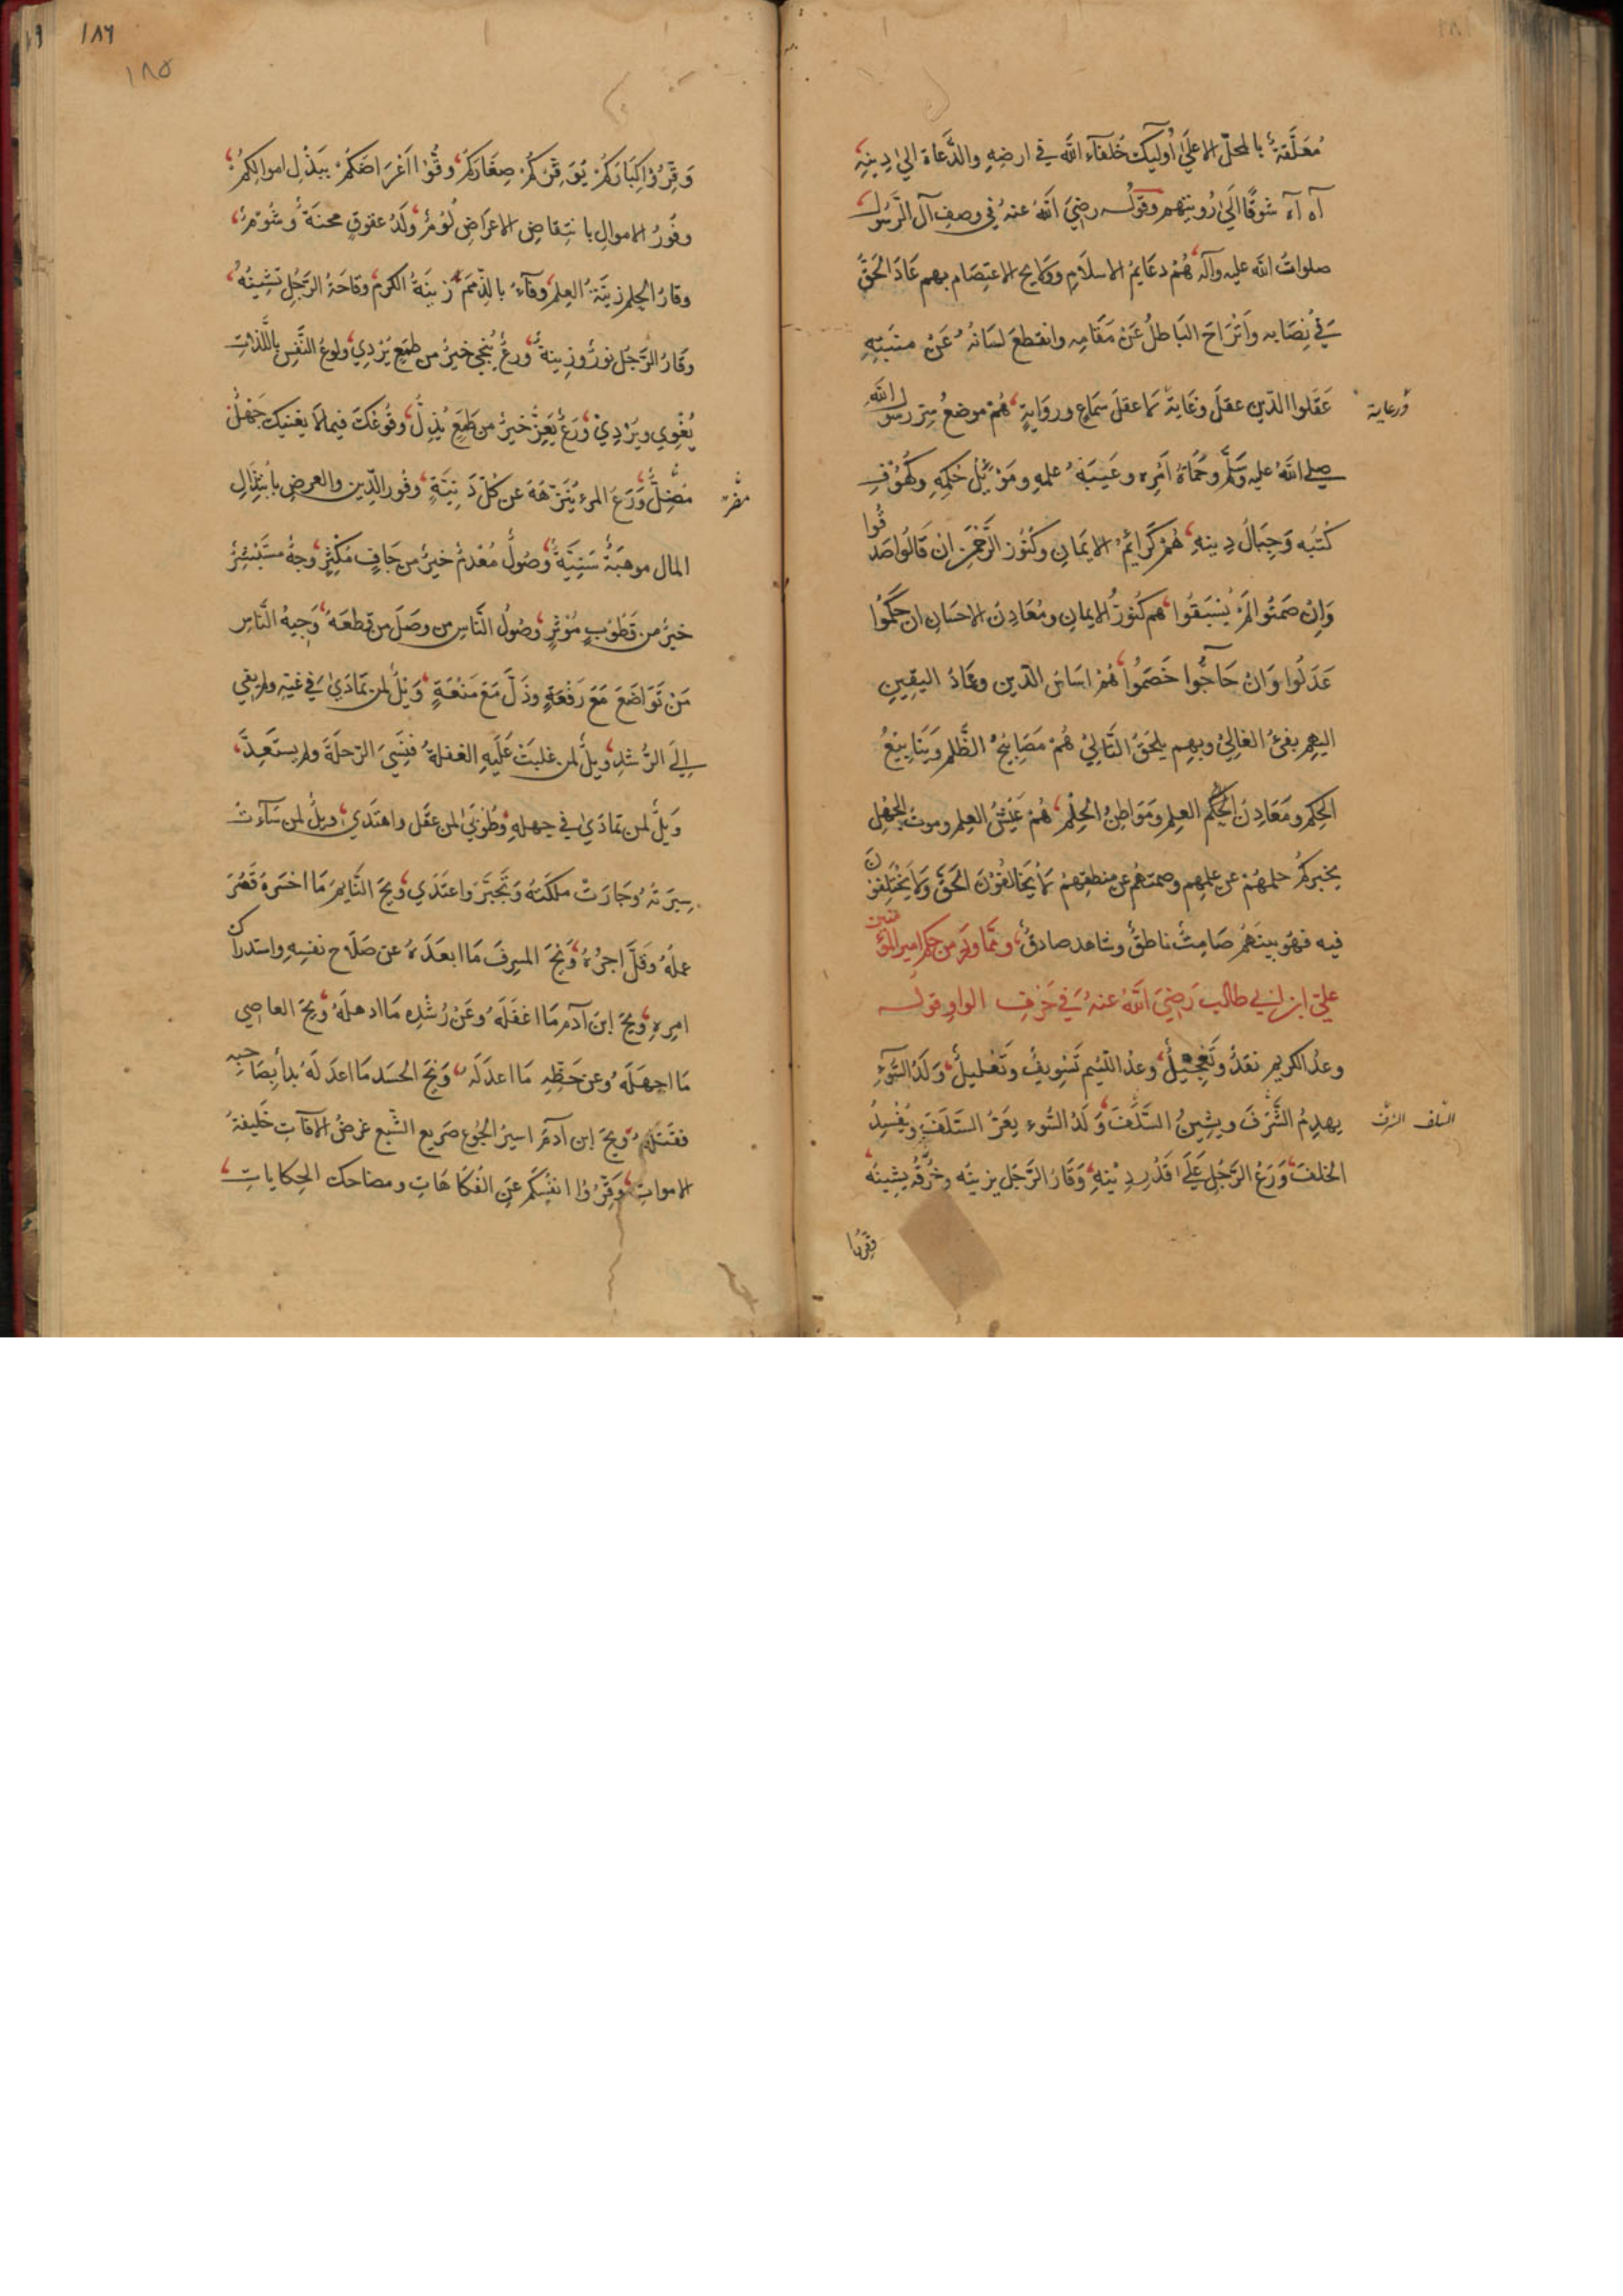 مُعَلَّقَةٌ بالمحلّ الاعلَى أولَيِك خُلفآءُ اللَّه في ارضِهِ والدُّعاة الي دِينِهِ
آه آه شوقًا اليَ رُويتِهِم وقولُه رضِيَ اللَّهُ عنهُ في وصفِ آل الرَّسُول
صلواتُ اللَّه عليه وآله هُمْ دعَايمُ الاسلَامِ وولايح الاعتِصَام بهم عَادَ الحَقُّ
في نِصَابِه وانْزَاحَ البَاطلُ عَنْ مَقَامِه وانقطعَ لسَانُهُ عَنْ منبَتِهِ
عَقَلوا الدّين عقلَ وِعَاية لا عقلَ سَمَاعٍ وروَايةٍ هُمْ موضعُ سِرّ رسُول اللَّه
ورعاية
صلي اللَّهُ عليهِ وسَلَّم وحُمَاةُ أمْرِه وعَيبَةُ علمِهِ ومَوْئِلُ حُكمِهِ وكُهُوْفُ
كُتُبه وَجِبَالُ دِينِهِ هُمْ كَرَائِمُ الايمَانِ وكُنُوز الرَّحْمَن انْ قَالُوا صَدقُوا
وَانْ صَمَتُوا لَمْ يُسْبَقُوا هم كُنوزُ الايمانِ ومُعَادِنَ الاحسَانِ ان حَكَمُوا
عَدَلُوا وَانْ حَاجُّوا خَصَمُوا هُمْ اساسُ الدّين وعِمَادُ اليَقِينِ
اليهِم يفئُ الغالِيْ وبهِم يلحَقُ التَّالِيْ هُمْ مَصَابِيْحُ الظُّلَم وَيَنَابِيْعُ
الحِكم ومَعَادِنَ الحِكَم العِلم ومَوَاطِنُ الحِلْم هُمْ عَيْشُ العِلم وموتُ الجَهْلِ
يخبركُم حلمهُمْ عن علمِهِم وصمتهُم عن منطقِهِمْ لَا يُخَالفُوْنَ الحَقَّ وَلَا يَخْتَلِفُونَ
فيه فهوَ بينَهُم صَامِتٌ ناطقٌ وشاهد صادقٌ وممَّا وردَ من حِكَم امير المؤمنين
عليّ ابن ابي طالب رَضِيَ اللَّهُ عنهُ في حَرْفِ الواوِ قوله
وعدُ الكريم نقدٌ وتَعْجِيلٌ وعدُ اللّئيم تَسْوِيفٌ وتَعْليلٌ وَلَدُ السُّوْءِ
يهدِمُ الشَّرَفَ ويشِينُ السَّلَفَ وَلَدُ السُّوءِ يعَرُّ السَّلَفَ ويُفْسِدُ
السَّلف الشرف
الخَلفَ وَرَعُ الرَّجُلِ عَلَى قَدْرِ دِيْنِهِ وَقَارُ الرَّجُل يزينُه وخُرْقُه يشِينُه
وقِّرُوا
١٨٦
١٨٥
وَقِّرُوْا كِبَارَكُمْ يُوَقِّرْكُمْ صِغَارُكُمْ وقُوْا اعْرَاضَكُمْ بِبَذْلِ اموالِكمْ
وفُورُ الاموالِ بانتِقاصِ الاعْرَاضِ لُوْمٌ ولَدٌ عقوقٍ محنَةٌ وشُوْمٌ
وقارُ الحِلم زينَةُ العِلم وَفَآءٌ بالذِّمَمِ زِينَةُ الكرَم وقَاحَةُ الرَّجُلِ تَشِينُهُ
وقَارُ الرَّجُل نورٌ وزينةٌ وَرعٌ يُنجي خيرٌ من طَمَعٍ يُرْدِي ولوعُ النَّفسِ باللَّذاتِ
يُغْوِي ويُرْدِيْ وَرَعٌ يُعِزُّ خيرٌ من طَمَعٍ يُذِلُّ وقُوعُكَ فيما لَا يعْنيكَ جَهْلٌ
مُضِلٌّ وَرَعُ المرءِ يُنَزِّهُهُ عَن كُلّ دَنِيَّةٍ وفُور الدّين والعِرضِ بابْتِذَالِ
المال موهبَةٌ سَنِيَّةٌ وصُولٌ مُعْدِمٌ خيرٌ من جَافٍ مُكْثِرٍ وجهٌ مستَبْشِرٌ
خيرٌ من قَطُوْبٍ مُؤْثِرٍ وصُولُ النَّاسِ من وصَلَ من قطعَهُ وَجِيهُ النَّاسِ
مَنْ تَوَاضَعَ مَعَ رَفْعَةٍ وذَلَّ مَعَ مَنْعَةٍ وَيْلٌ لمن تمَادَيٰ في غيّهِ ولم يفي
إلَيَ الرُّشدِ ويلٌ لمن غلبَتْ عَلَيهِ الغفلةُ فَنَسِيَ الرّحلَةَ ولم يستَعِدَّ
وَيلٌ لمن تمادَيٰ في جهلهِ وطُوبَيٰ لمن عقَل واهتَدَي ويلٌ لمن سَآءَتْ
سِيرَتهُ وَجَارَتْ ملكَتهُ وَتَجَبَّرَ واعتَدَي ويحَ النَّايمِ مَا اخسَرهُ قَصُرَ
عملهُ وقَلَّ اجرُهُ وَيْحَ المسرِفِ مَا ابعَدَهُ عن صَلَاح نفسِهِ واستدراك
امرِهِ ويحَ ابنَ آدم مَا اغفَلَهُ وعَنْ رُشْدِه مَا اذهلَهُ ويحَ العاصِي
مَا اجهَلَهُ وعن حَظِّهِ مَا اعدَلَهُ وَيْحَ الحَسَد مَا اعدَلَهُ بدأ بِصَاحبِه
فقَتلَهُ ويحَ ابن آدمَ اسيرُ الجُوع صَريع الشّبع غرضُ الآفَاتِ خَليفةُ
الاموات وقِّرُوْا انفُسَكم عَنِ الفُكَاهَاتِ ومضاحك الحِكاياتِ